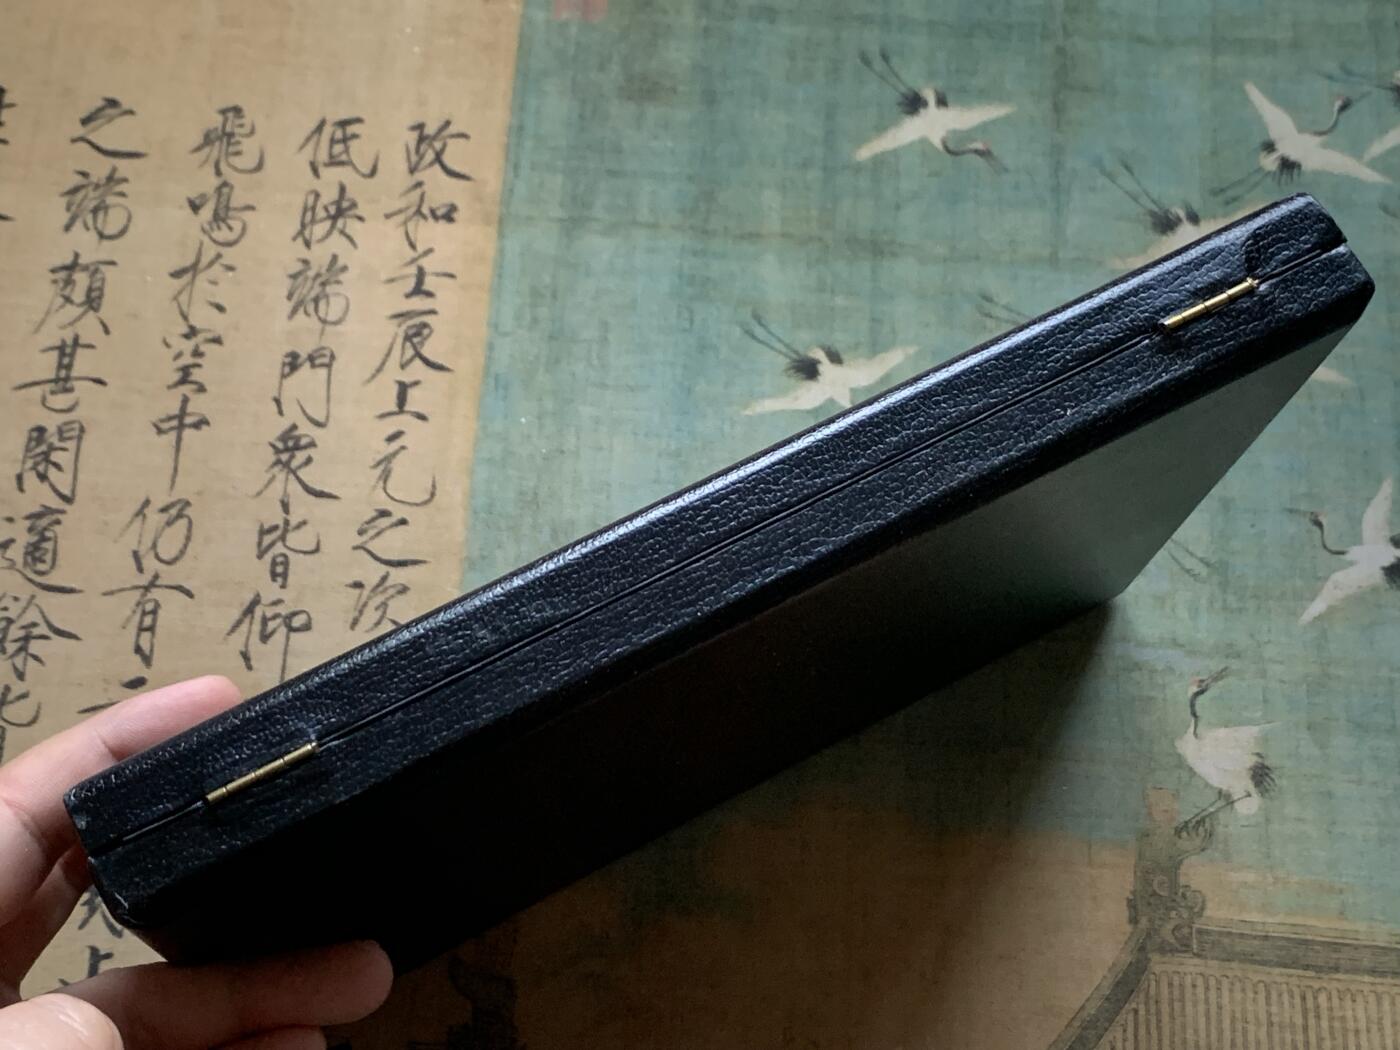 政和壬辰上元之次
低映端門衆皆仰
飛鳴於空中仍有二
之端頗甚閑適餘皆